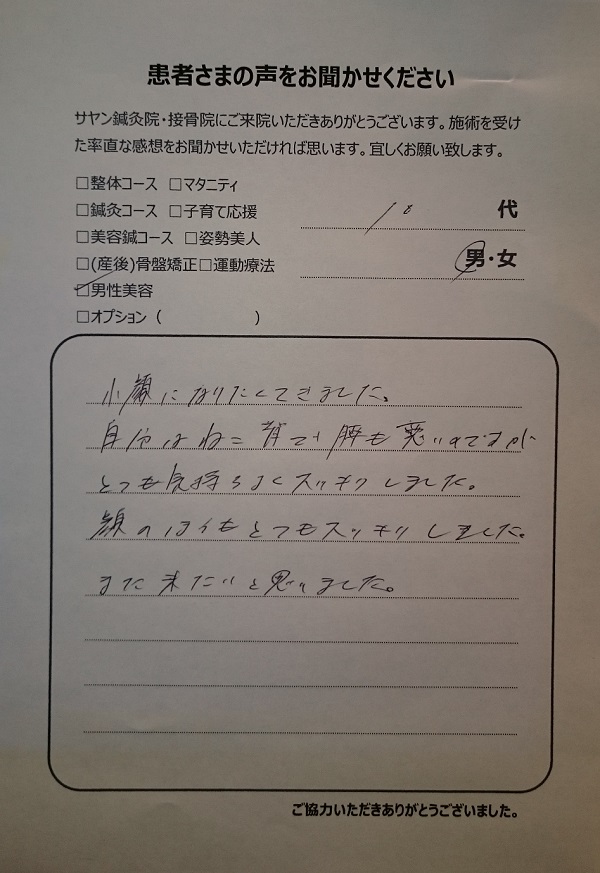 患者さまの声をお聞かせください
サヤン鍼灸院・接骨院にご来院いただきありがとうございます。施術を受け
た率直な感想をお聞かせいただければ思います。宜しくお願い致します。
□整体コース □マタニティ
□鍼灸コース □子育て応援
□美容鍼コース □姿勢美人
□(産後)骨盤矯正□運動療法
□男性美容
□オプション( )
10 代
男・女
小顔になりたくてきました。
自分はねこ背で腰も悪いのですが
とても気持ちよくスッキリしました。
顔のほうもとてもスッキリしました。
また来たいと思いました。
ご協力いただきありがとうございました。